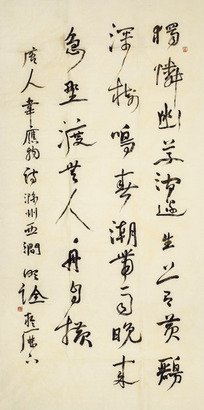 獨憐幽草澗邊生上有黃鸝
深樹鳴春潮帶雨晚來
急野渡無人舟自橫
唐人韋應物詩滁州西澗明詮於歷下